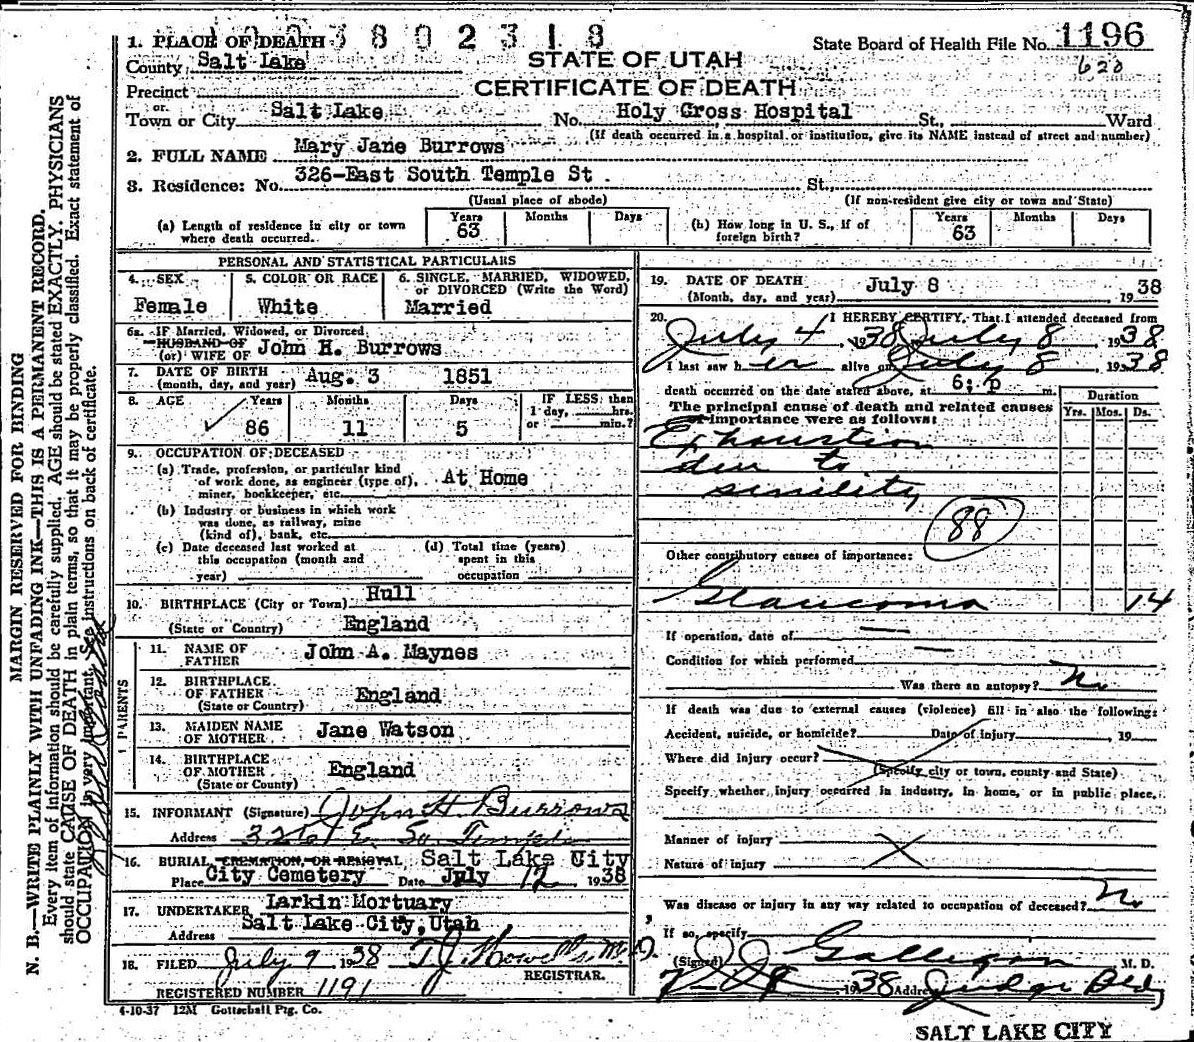 1003802318
1. PLACE OF DEATH
County Salt Lake
STATE OF UTAH
CERTIFICATE OF DEATH
State Board of Health File No. 1196
620
Precinct
or
Town or City Salt Lake No. Holy Cross Hospital St., Ward
(If death occurred in a hospital or institution, give its NAME instead of street and number)
2. FULL NAME Mary Jane Burrows
3. Residence: No. 326-East South Temple St. St.,
(Usual place of abode) (If non-resident give city or town and State)
(a) Length of residence in city or town where death occurred. Years 63 Months Days
(b) How long in U. S., if of foreign birth? Years 63 Months Days
PERSONAL AND STATISTICAL PARTICULARS
4. SEX Female
5. COLOR OR RACE White
6. SINGLE, MARRIED, WIDOWED, or DIVORCED (Write the Word) Married
6a. IF Married, Widowed, or Divorced
HUSBAND OF
(or) WIFE OF John H. Burrows
7. DATE OF BIRTH
(month, day, and year) Aug. 3 1851
8. AGE Years 86 Months 11 Days 5 IF LESS than 1 day, hrs. or min.?
9. OCCUPATION OF DECEASED
(a) Trade, profession, or particular kind
of work done, as engineer (type of),
miner, bookkeeper, etc. At Home
(b) Industry or business in which work
was done, as railway, mine
(kind of), bank, etc.
(c) Date deceased last worked at
this occupation (month and
year)
(d) Total time (years)
spent in this
occupation
10. BIRTHPLACE (City or Town) Hull
(State or Country) England
PARENTS
11. NAME OF FATHER John A. Maynes
12. BIRTHPLACE OF FATHER
(State or Country) England
13. MAIDEN NAME OF MOTHER Jane Watson
14. BIRTHPLACE OF MOTHER
(State or County) England
15. INFORMANT (Signature) John H Burrows
Address 326 E. So. Temple
16. BURIAL, CREMATION, OR REMOVAL Salt Lake City
Place City Cemetery Date July 12, 1938
17. UNDERTAKER Larkin Mortuary
Address Salt Lake City, Utah
18. FILED July 9 1938 T J Howells M.D.
REGISTRAR.
REGISTERED NUMBER 1191
4-10-37 12M Gottschall Ptg. Co.
19. DATE OF DEATH
(Month, day, and year) July 8 1938
20. I HEREBY CERTIFY, That I attended deceased from
July 4, 1938 July 8, 1938
I last saw her alive on July 8 1938
death occurred on the date stated above, at 6; p m.
The principal cause of death and related causes
of importance were as follows:
Duration
Yrs. Mos. Ds.
Exhaustion
due to
senility
88
Other contributory causes of importance:
Glaucoma 14
If operation, date of —
Condition for which performed —
Was there an autopsy? No
If death was due to external causes (violence) fill in also the following:
Accident, suicide, or homicide? Date of injury , 19
Where did injury occur?
(Specify city or town, county and State)
Specify whether injury occurred in industry, in home, or in public place.
Manner of injury
Nature of injury
Was disease or injury in any way related to occupation of deceased? No
If so, specify
(Signed) Galligan M. D.
7-9 1938 Address Judge Bld
SALT LAKE CITY
MARGIN RESERVED FOR BINDING
N. B.—WRITE PLAINLY WITH UNFADING INK—THIS IS A PERMANENT RECORD.
Every item of information should be carefully supplied. AGE should be stated EXACTLY. PHYSICIANS
should state CAUSE OF DEATH in plain terms, so that it may be properly classified. Exact statement of
OCCUPATION is very important. See instructions on back of certificate.